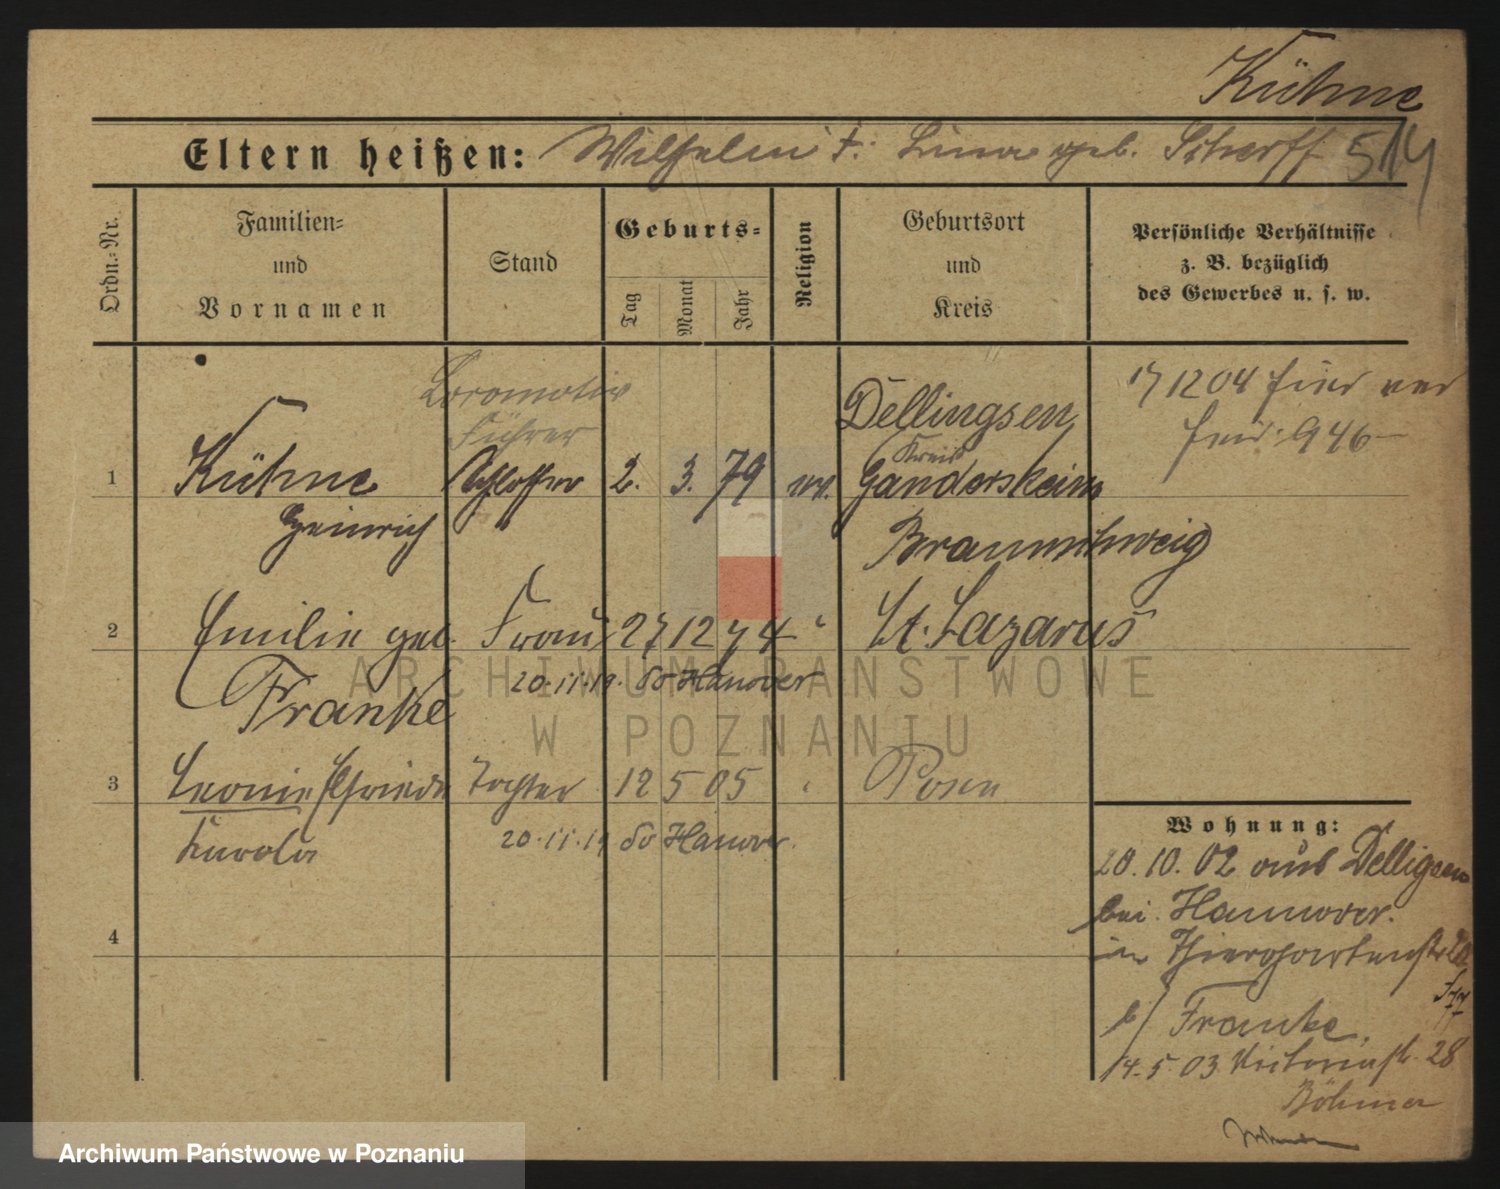 Kühne
Eltern heißen: Wilhelm †: Lina geb. Scherff 514
Ordn.-Nr.
Familien-
und
Vornamen
Stand
Geburts-
Tag
Monat
Jahr
Religion
Geburtsort
und
Kreis
Persönliche Verhältnisse
z. B. bezüglich
des Gewerbes u. s. w.
Locomotiv
Führer
1 Kühne Schlosser 2. 3. 79 ev.
Heinrich
Dellingsen
Kreis
Gandersheim
Braunschweig
171204
946
2 Emilie geb. Frau 27 12 74 " St. Lazarus
Franke
20.11.19. do Hanover
3 Leonie Elfriede Tochter 12 5 05 " Posen
Karola
20.11.19 do Hanover.
4
Wohnung:
20.10.02 aus Delligsen
bei Hannover.
in Thiergartenstr
b/ Franke.
14.5.03 Victoriastr. 28
Böhmer
ARCHIWUM PAŃSTWOWE
W POZNANIU
Archiwum Państwowe w Poznaniu